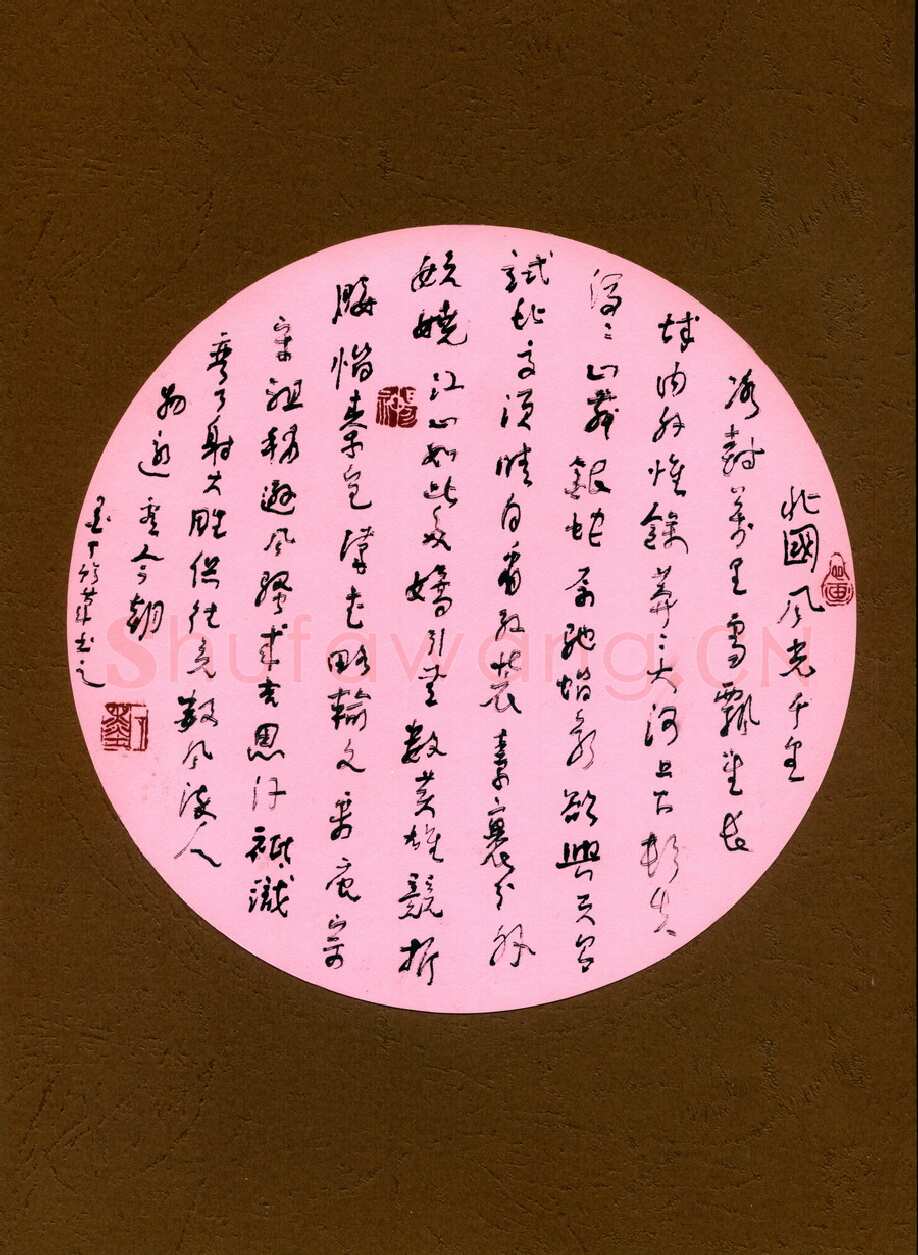 北國风光千里
冰封萬里雪飄望長
城内外惟餘莽〻大河上下頓失
滔〻山舞銀蛇原馳蜡象欲與天公
試比高須晴日看红裝素裹分外
妖嬈江山如此多嬌引無數英雄競折
腰惜秦皇漢武略輸文采唐宗
宋祖稍遜风騷成吉思汗祗識
彎弓射大雕俱往矣數风流人
物還看今朝
Shufawang.CN